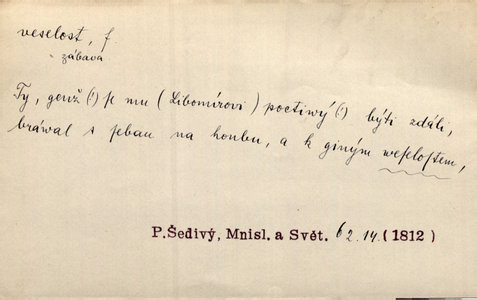 veselost, f.
zábava
Ty, genž (!) se mu (Libomírovi) poctiwý (!) býti zdáli,
bráwal s sebau na honbu, a k giným weselostem,
P. Šedivý, Mnisl. a Svět. 62.14. (1812)